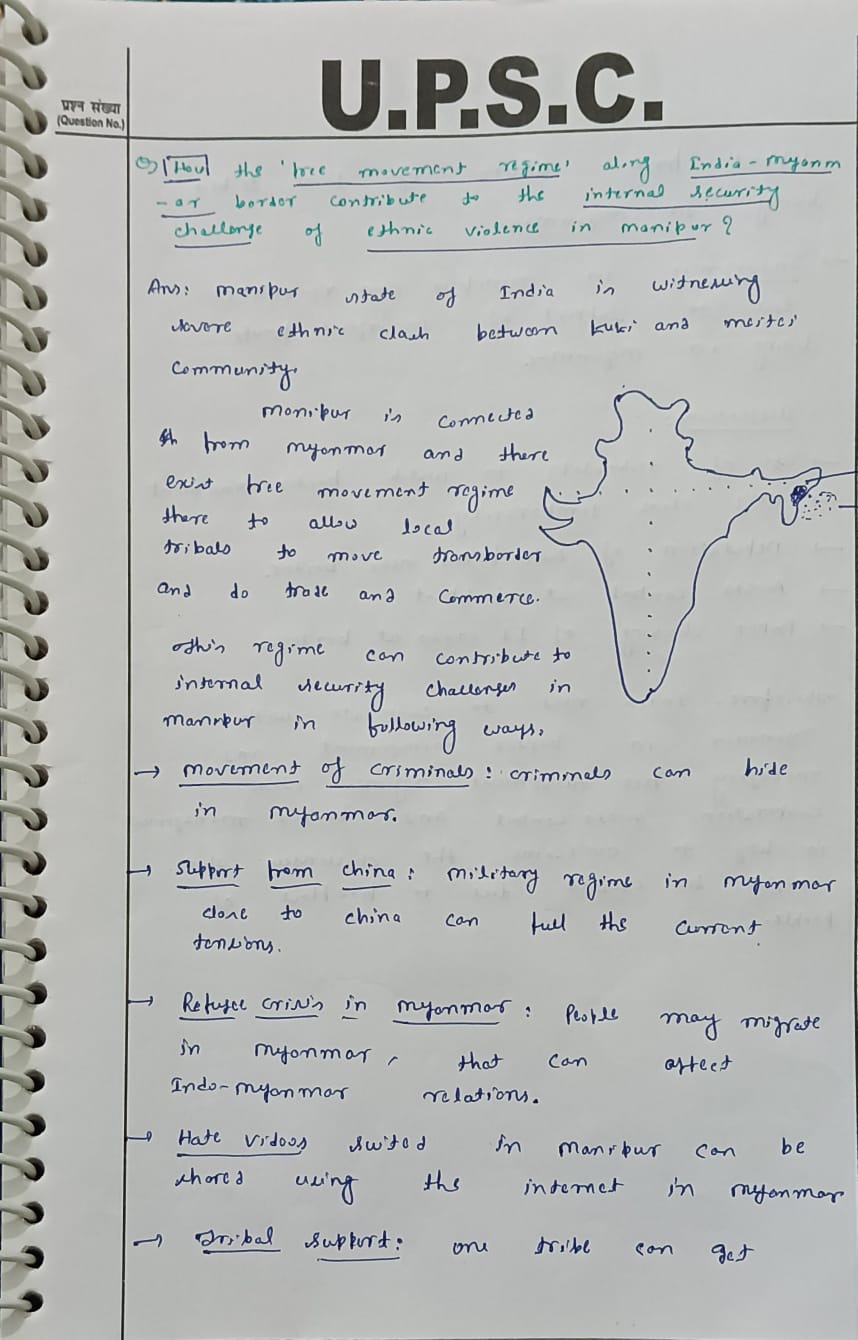 U.P.S.C.
प्रश्न संख्या
(Question No.)
Q) How the 'free movement regime' along India-myanm
-ar border contribute to the internal security
challenge of ethnic violence in manipur?
Ans: manipur state of India is witnessing
severe ethnic clash between kuki and meitei
Community.
manipur is connected
from myanmar and there
exist free movement regime
there to allow local
tribals to move transborder
and do trade and Commerce.
This regime can contribute to
internal security challenges in
manipur in following ways.
→ movement of criminals: criminals can hide
in myanmar.
→ Support from china: military regime in myanmar
close to china can fuel the current
tensions.
→ Refugee crisis in myanmar: People may migrate
in myanmar, that can affect
Indo-myanmar relations.
→ Hate videos in manipur can be
shared using the internet in myanmar
→ Tribal support: one tribe can get